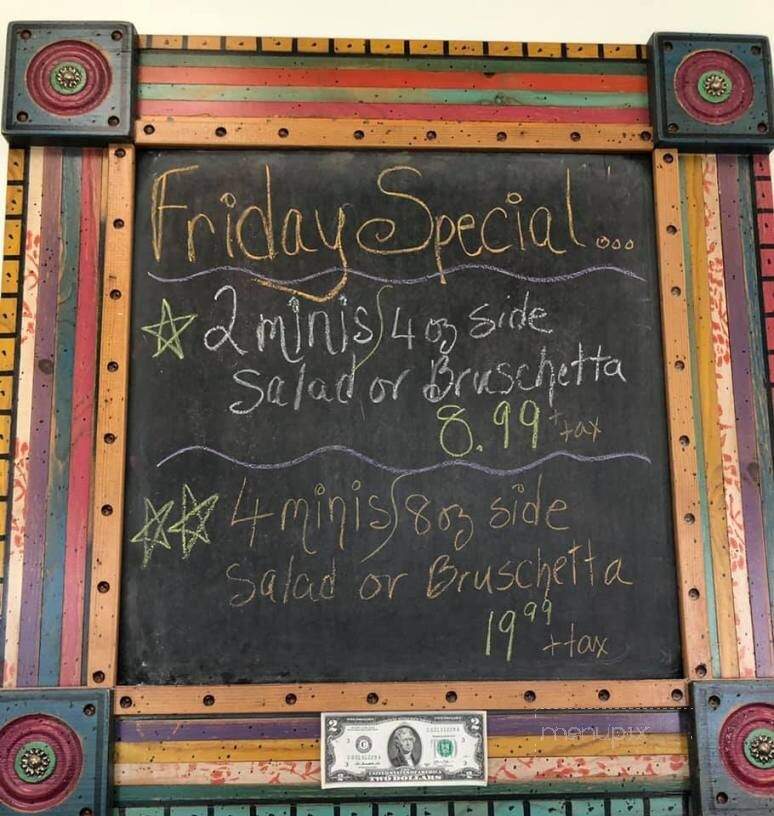 Friday Special...
2 minis 4 oz side
Salad or Bruschetta
8.99 + tax
4 minis 8 oz side
Salad or Bruschetta
19.99 + tax
2 2
TWO DOLLARS
menupix